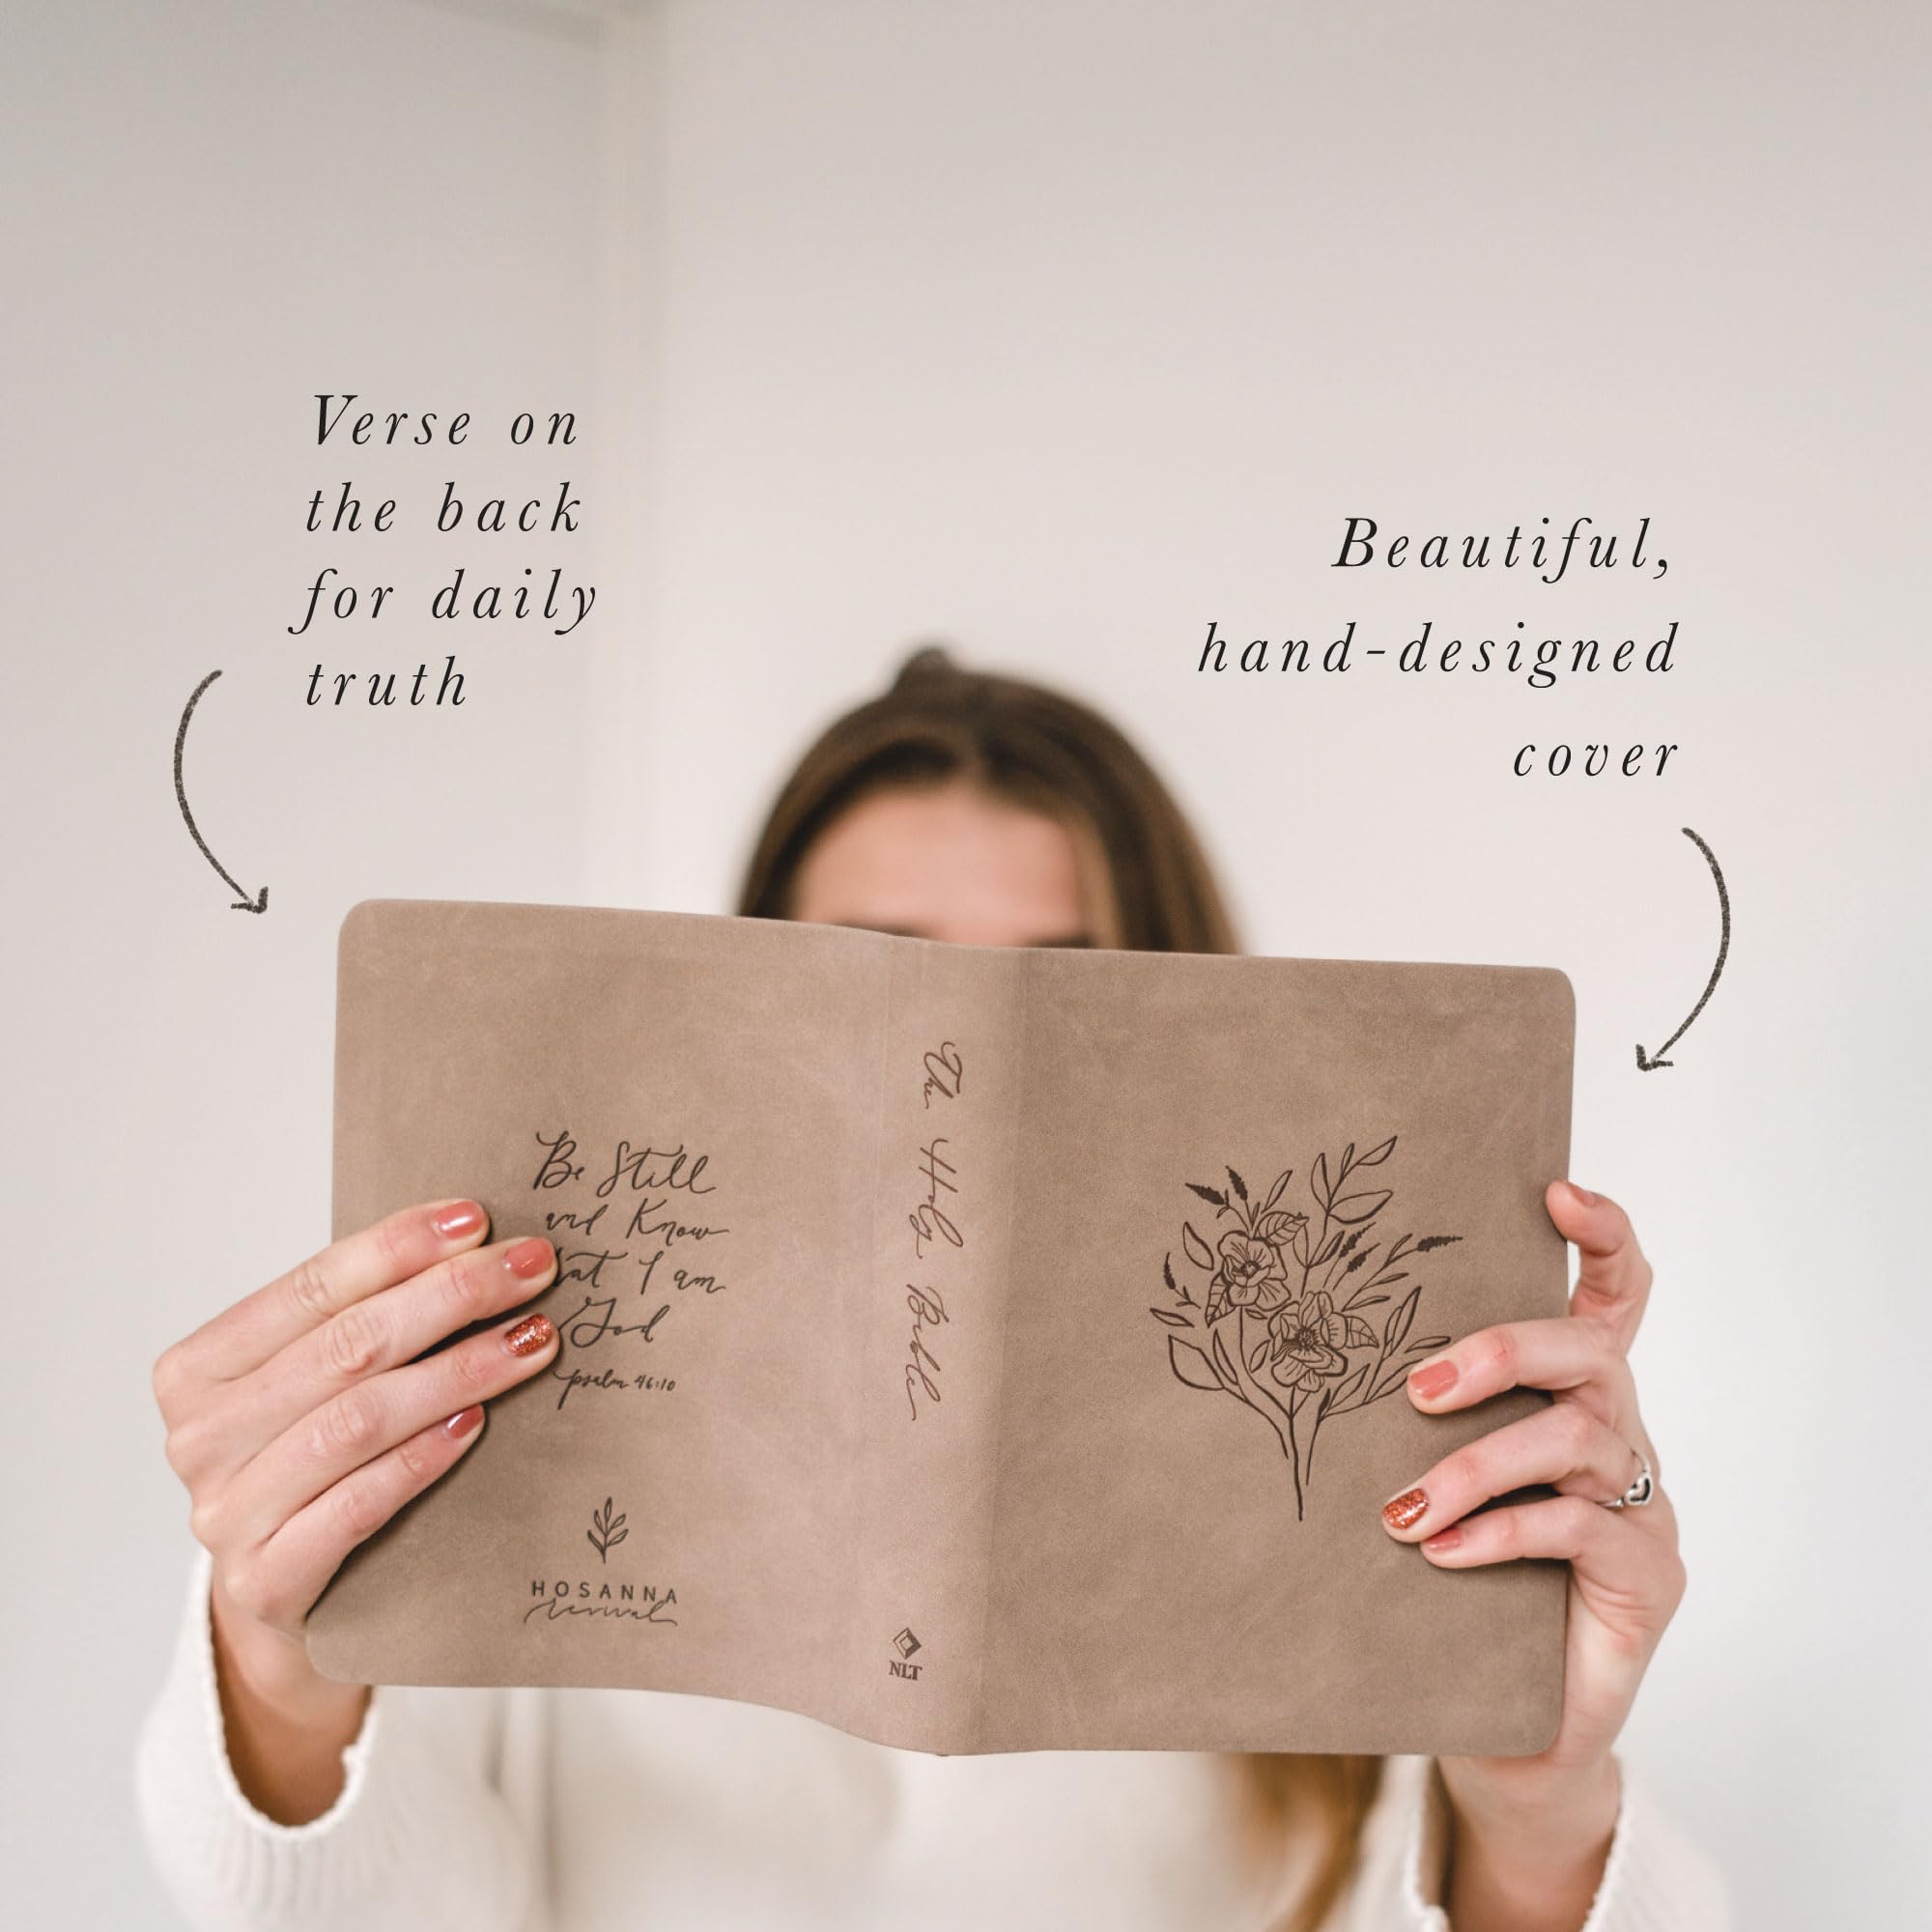 Verse on
the back
for daily
truth
Beautiful,
hand-designed
cover
Be Still
and Know
at I am
God
psalm 46:10
HOSANNA
revival
The Holy Bible
NLT